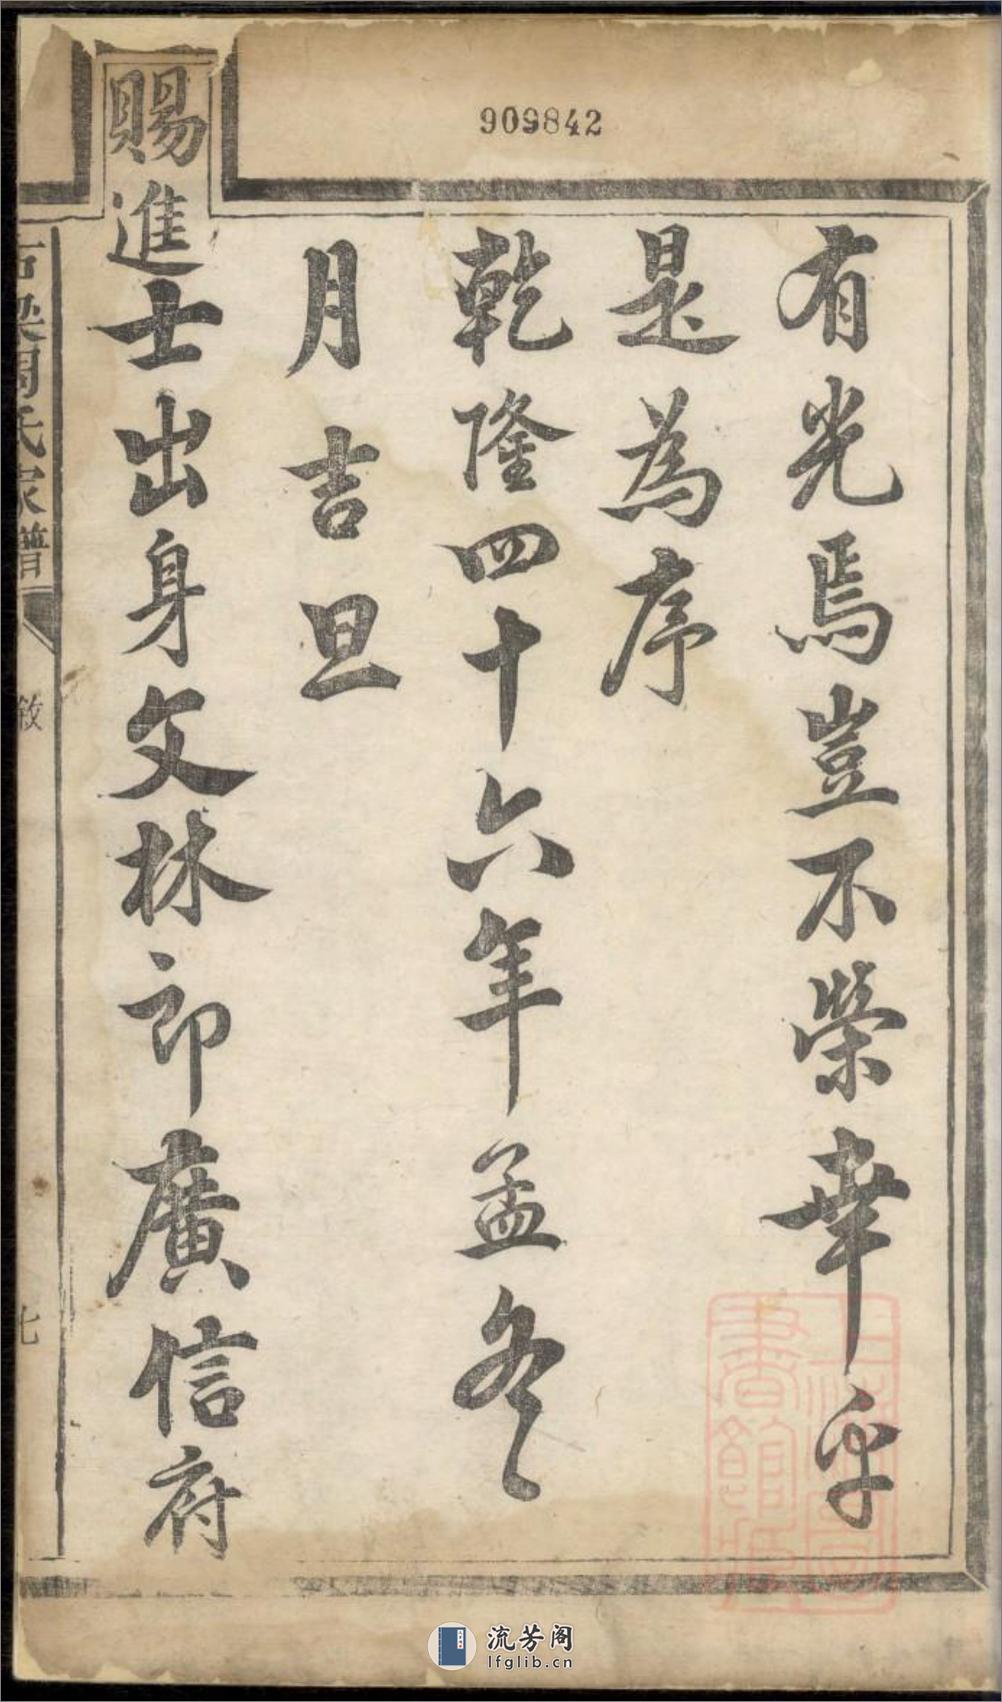 909842
有光焉豈不榮幸乎
是為序
乾隆四十六年孟冬
月吉旦
賜進士出身文林郎廣信府
石梁周氏家譜
敘
七
上海圖書館藏
流芳阁
lfglib.cn